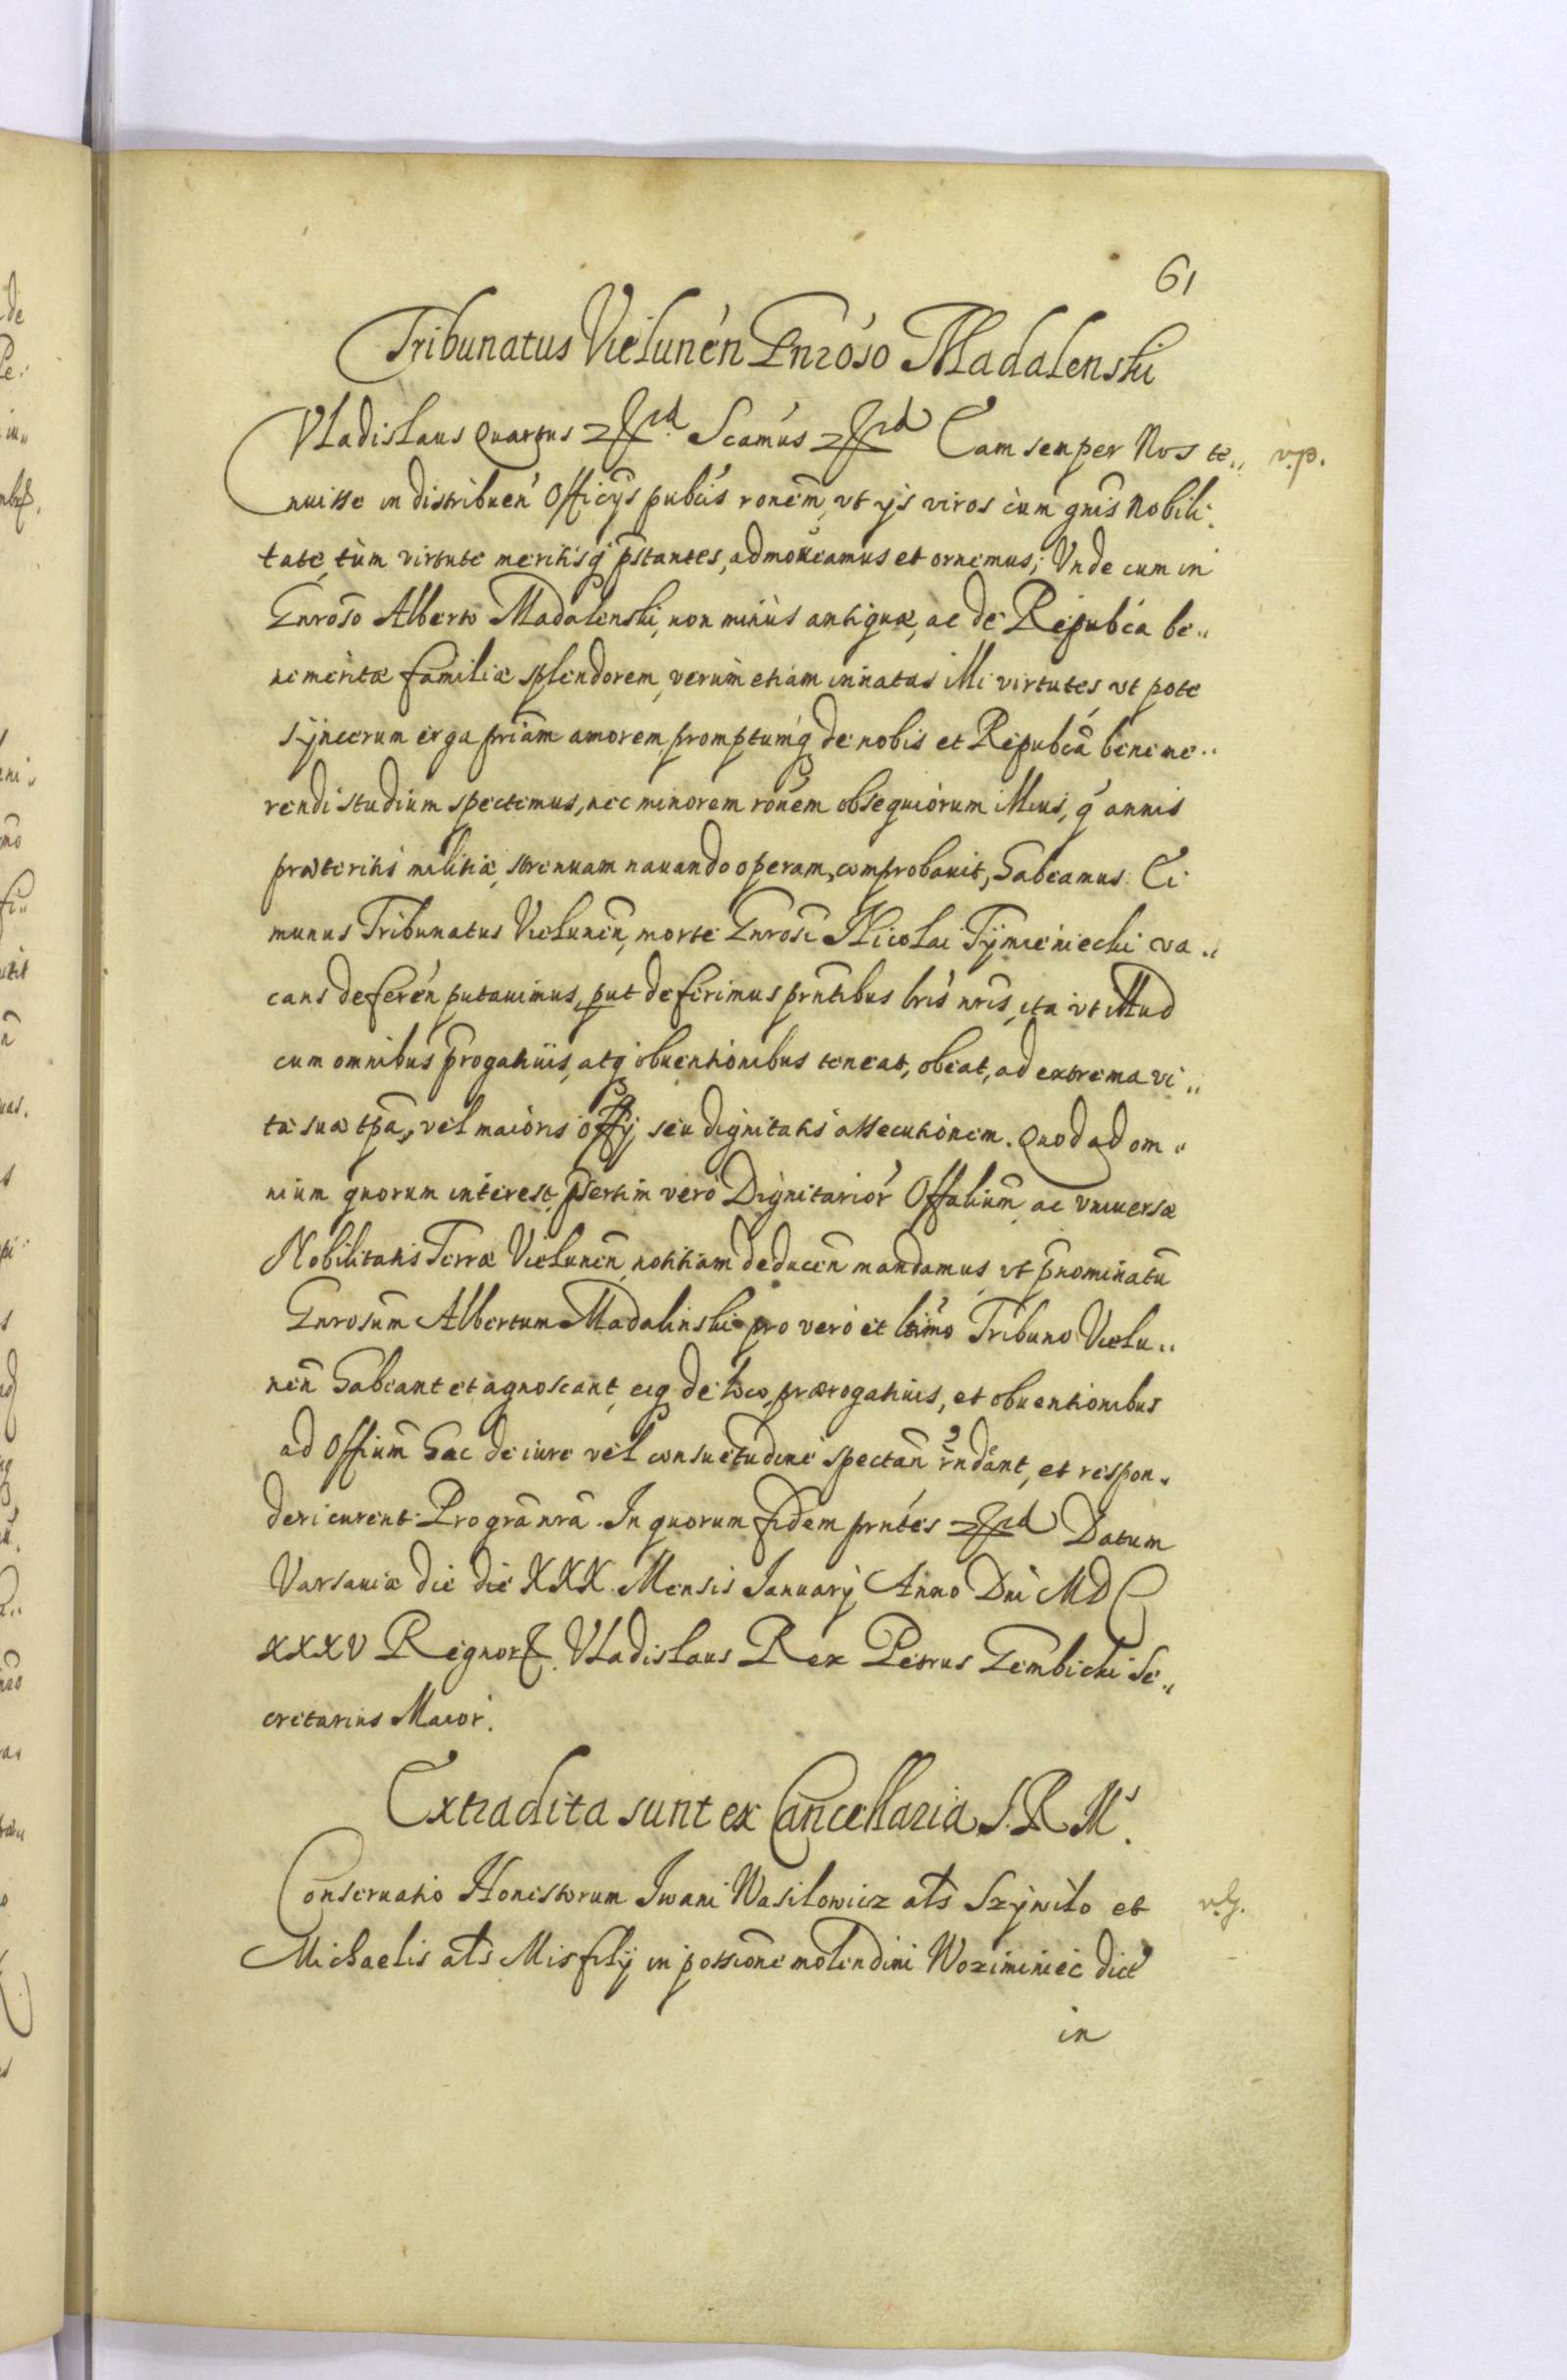 61
Tribunatus Vielunen̄ Gnroso Madalenski
Vladislaus Quartus Scamus Eam semper Nos te„ v.p.
nuisse in distribuen̄ Officÿs pubcis ronem̄, vt ÿs viros cùm gnis Nobili„
tate, tùm virtute meritisq̨ p̄stantes, admoueamus et ornemus; Vnde cum in
Gnroso Alberto Madalenski, non minùs antiquæ, ac de Repubca be„
nemeritæ familiæ splendorem, verùm etiam innatas illi virtutes, vt pote
sÿncerum erga pri̅am amorem, promptumq̨ de nobis et Repubca beneme„
rendi studium spectemus, nec minorem ronem̄ obsequiorum illius, q̄ annis
præteritis militiæ, strenuam nauando operam, comprobauit, habeamus. Ei
munus Tribunatus Vielunen̄, morte Gnrosi Nicolai Tÿmieniecki va„
cans deferen̄ putauimus, put deferimus prntibus lris nris, ita vt illud
cum omnibus p̄rogatiuis, atq̨ obuentionibus teneat, obeat, ad extrema vi„
tæ suæ tp̄a, vel maioris offÿ seu dignitatis assecutionem. Quod ad om„
nium quorum interest, p̄sertim verò Dignitarior̄ Offalium̄ ac vniuersæ
Nobilitatis Terræ Vielunen̄, notitiam deducen̄ mandamus, vt p̄nominatu̅
Gnrosum Albertum Madalinski pro vero et ltimo Tribuno Vielu„
nen̄ habeant et agnoscant, eiq̨ de loco, prærogatiuis, et obuentionibus
ad Offium̄ hac de iure vel consuetudine spectan̄ rn̄dant, et respon„
deri curent. Pro gra̅ nra̅. In quorum fidem prntes Datum
Varsauiæ die die XXX Mensis Januarÿ Anno Dni MDC
XXXV Regnor̄. Vladislaus Rex Petrus Gembicki Se„
cretarius Maior.
Extradita sunt ex Cancellaria S. R. Mˢ.
Conseruatio Honestorum Jwani Wasilowicz als Szÿwilo et
Michaelis als Mis filÿ in possione molendini Woziminiec dict̄
in